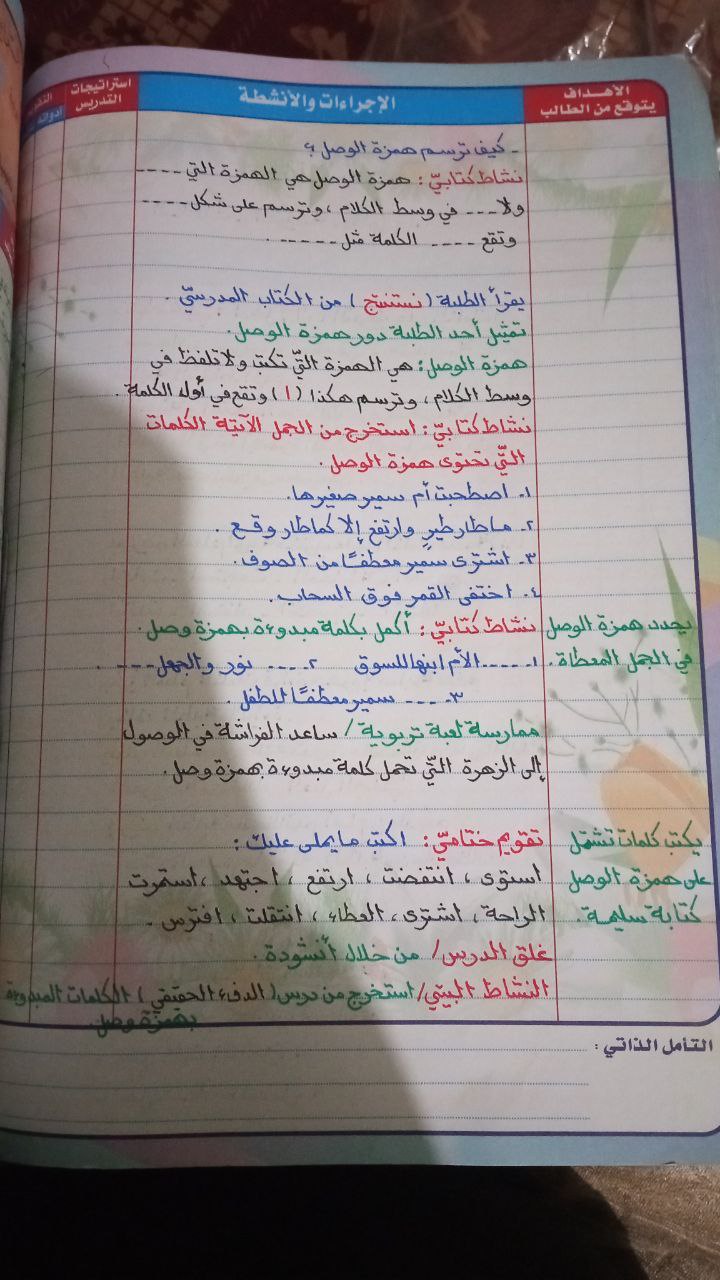 الأهداف يتوقع من الطالب
الإجراءات والأنشطة
استراتيجات التدريس
- كيف ترسم همزة الوصل ؟
نشاط كتابيّ : همزة الوصل هي الهمزة التي ----
ولا --- في وسط الكلام ، وترسم على شكل ----
وتقع ---- الكلمة مثل ----- .
يقرأ الطلبة ( نستنتج ) من الكتاب المدرسيّ .
تمثيل أحد الطلبة دور همزة الوصل .
همزة الوصل : هي الهمزة التّي تكتب ولا تلفظ في
وسط الكلام ، وترسم هكذا ( ا ) وتقع في أول الكلمة .
نشاط كتابيّ : استخرج من الجمل الآتية الكلمات
التّي تحتوى همزة الوصل .
١- اصطحبت أم سمير صغيرها.
٢- ما طار طيرٍ وارتفع إلا كما طار وقع .
٣- اشترى سمير معطفًا من الصوف .
٤- اختفى القمر فوق السحاب .
يحدد همزة الوصل
نشاط كتابيّ : أكمل بكلمة مبدوءة بهمزة وصل .
في الجمل المعطاة .
١- ---- الأم ابنها للسوق ٢- --- نور والجهل --- .
٣- --- سمير معطفًا للطفل .
ممارسة لعبة تربوية / ساعد الفراشة في الوصول
إلى الزهرة التّي تحمل كلمة مبدوءة بهمزة وصل .
يكتب كلمات تشتمل
تقويم ختاميّ : اكتب ما يملى عليك :
على همزة الوصل
استوى ، انتفضت ، ارتفع ، اجتهد ، استمرت
كتابة سليمة .
الراحة ، اشترى ، العطاء ، انتقلت ، افترس .
غلق الدرس / من خلال أنشودة .
النشاط البيتي / استخرج من درس ( الدفء الحقيقي ) الكلمات المبدوءة
بهمزة وصل.
التأمل الذاتي :